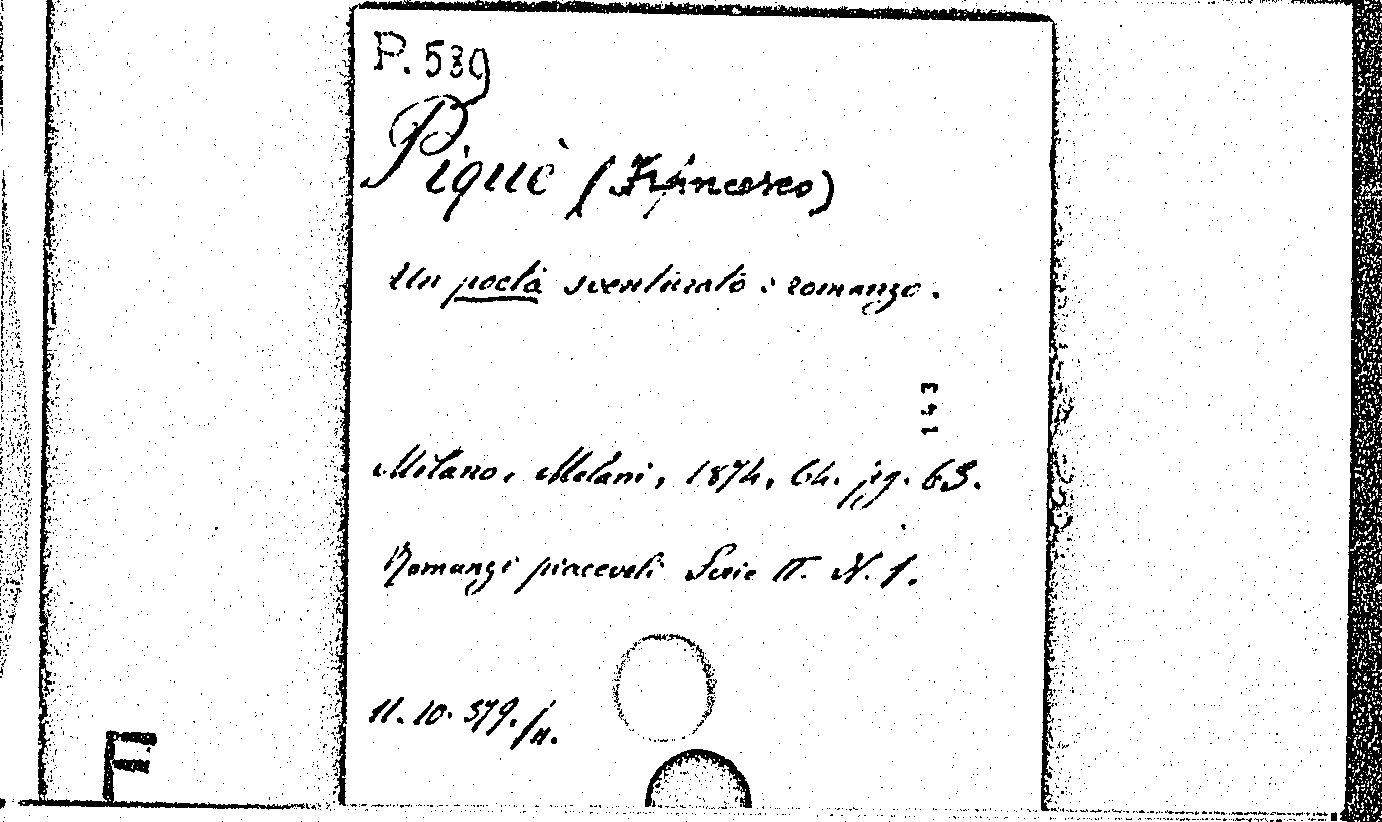 P. 539
Piquè (Francesco)
Un poeta sventurato : romanzo.
143
Milano, Melani, 1874, 64. pg. 63.
Romanzi piacevoli Serie II. N. 1.
11. 10. 379./II.
F